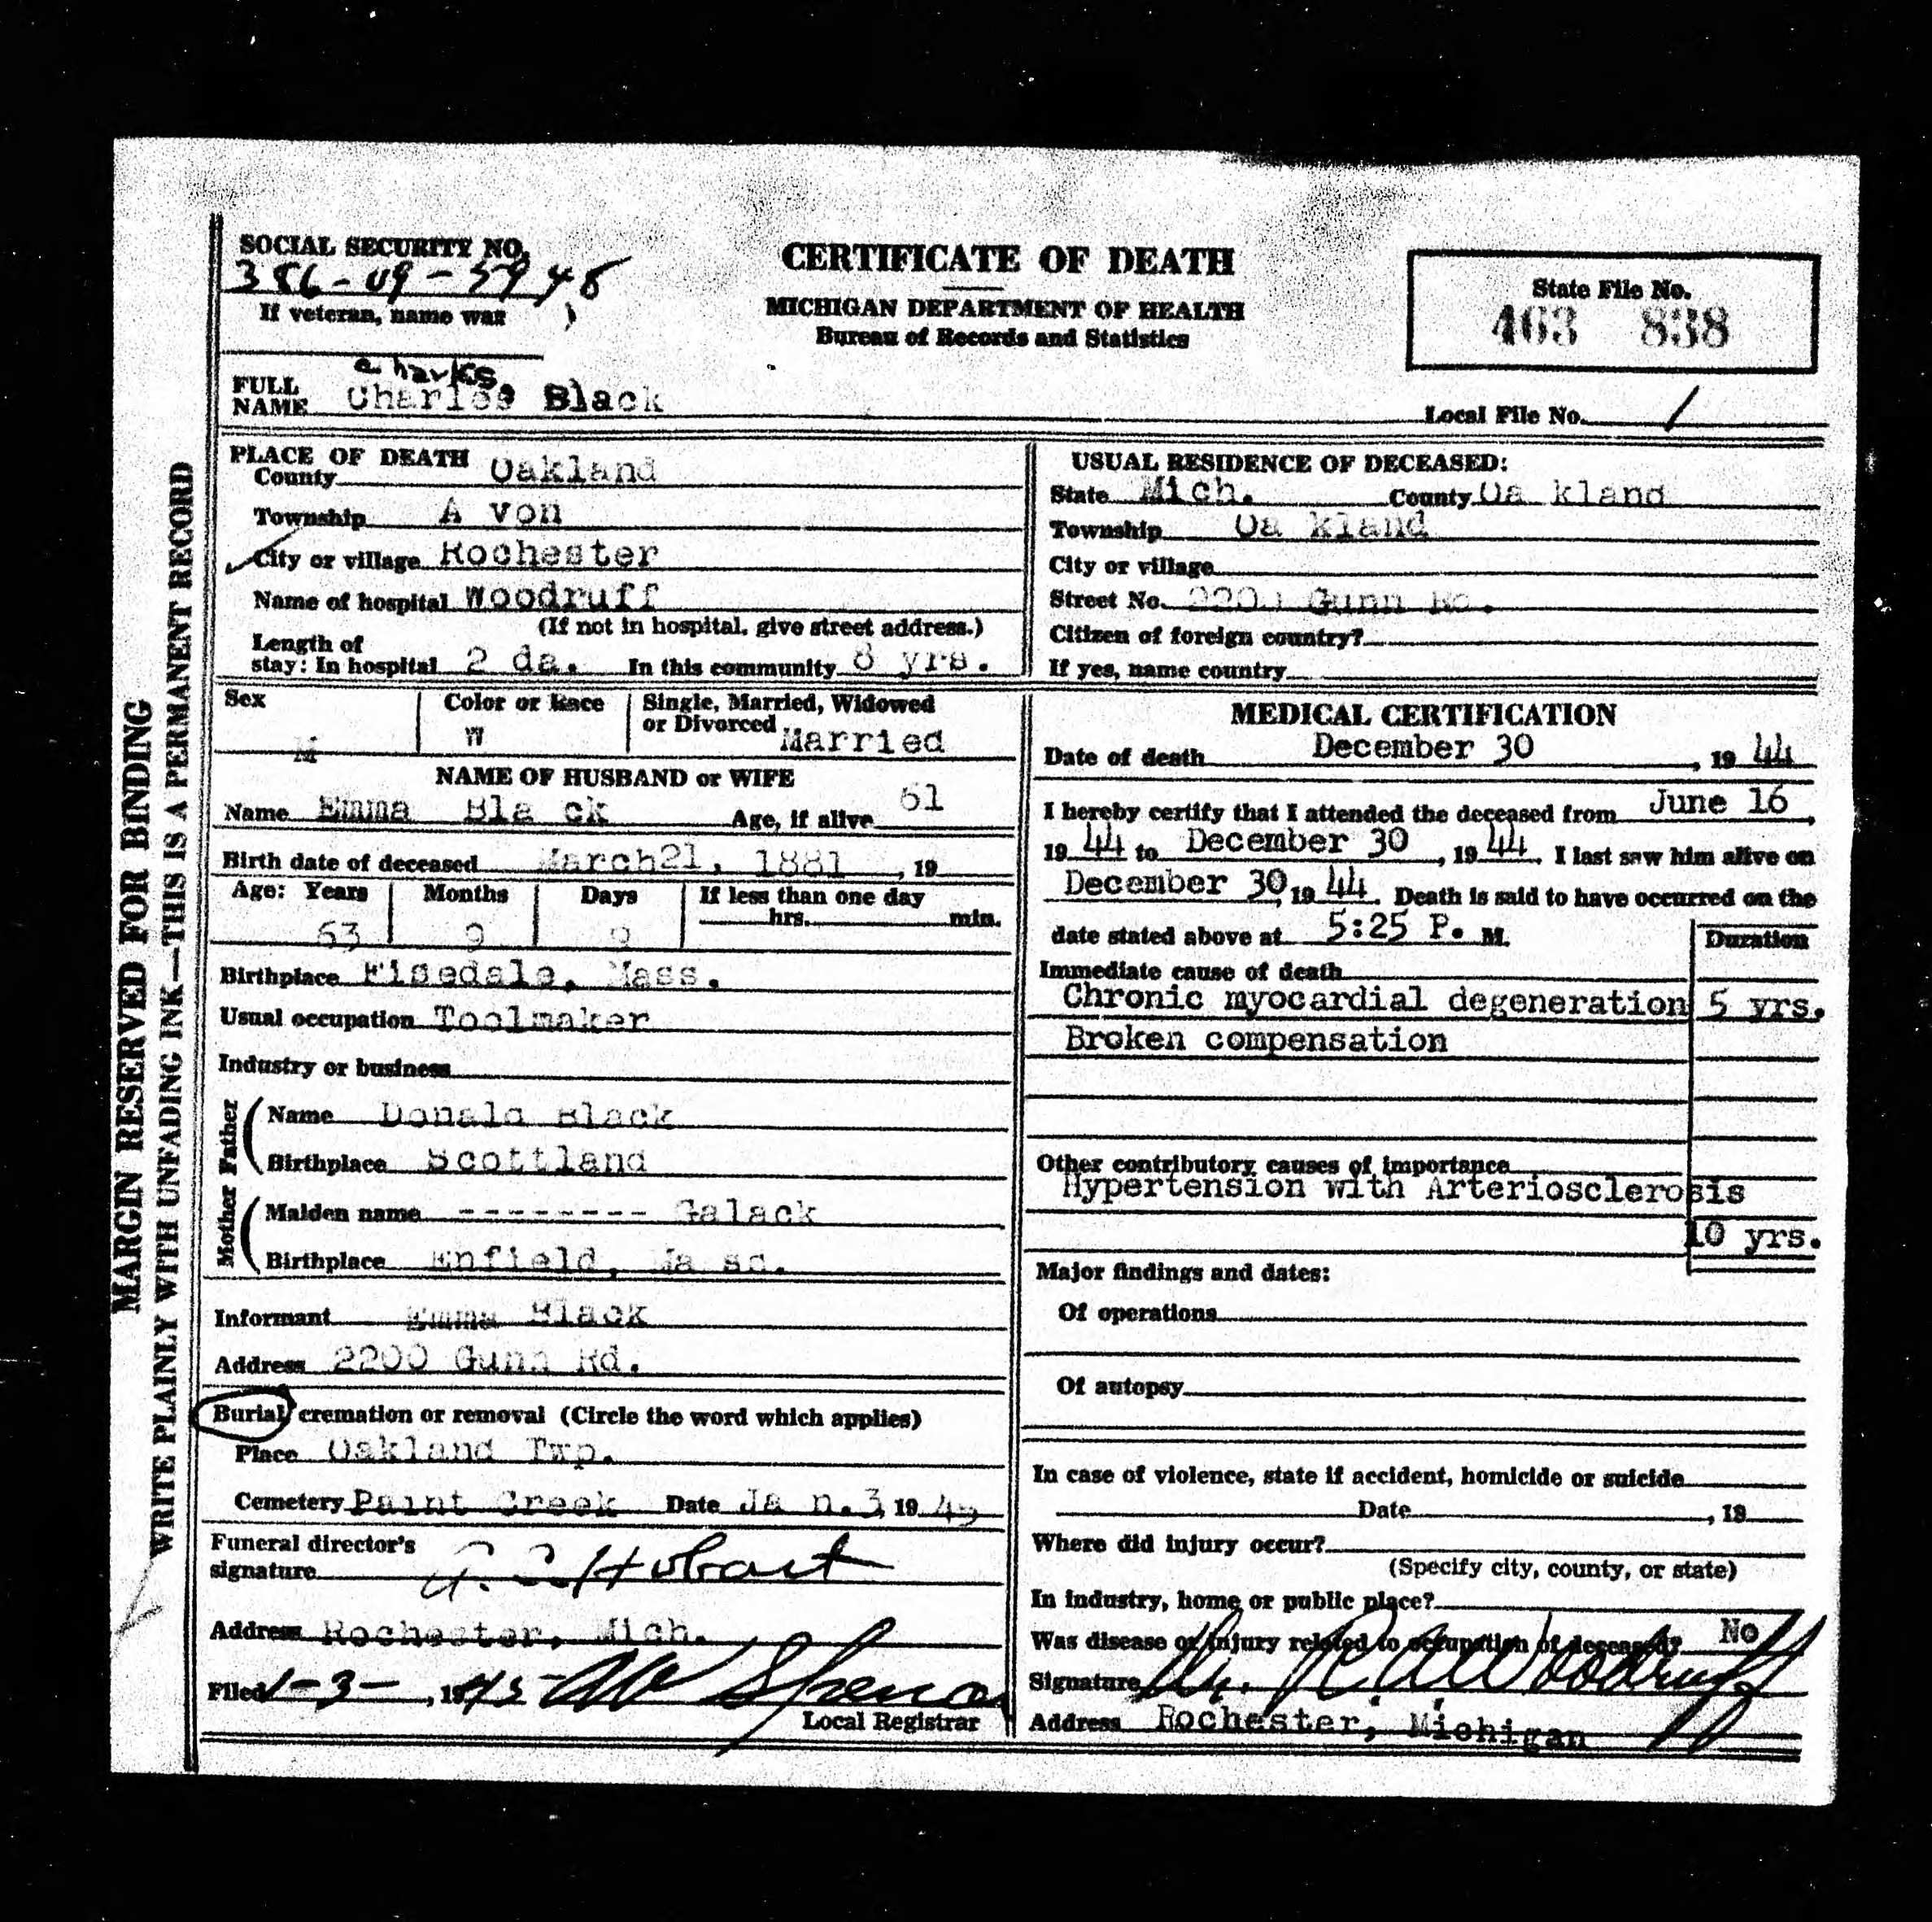 MARGIN RESERVED FOR BINDING
WRITE PLAINLY WITH UNFADING INK—THIS IS A PERMANENT RECORD
SOCIAL SECURITY NO.
If veteran, name was
CERTIFICATE OF DEATH
MICHIGAN DEPARTMENT OF HEALTH
Bureau of Records and Statistics
State File No.
463 838
Charles
FULL NAME Charles Black
Local File No. 1
PLACE OF DEATH
County Oakland
Township A von
City or village Rochester
Name of hospital Woodruff
(If not in hospital, give street address.)
Length of stay: In hospital 2 da. In this community 8 yrs.
USUAL RESIDENCE OF DECEASED:
State Mich. County Oa kland
Township Oa kland
City or village
Street No. 2200 Gunn Rd.
Citizen of foreign country?
If yes, name country
Sex M
Color or Race W
Single, Married, Widowed or Divorced Married
NAME OF HUSBAND or WIFE
Name Emma Bla ck Age, if alive 61
Birth date of deceased March21, 1881 , 19
Age: Years 63 Months 9 Days 9 If less than one day hrs. min.
Birthplace Fisedale, Mass.
Usual occupation Toolmaker
Industry or business
Father
Name Donald Black
Birthplace Scottland
Mother
Maiden name -------- Galack
Birthplace Enfield, Ma ss.
Informant Emma Black
Address 2200 Gunn Rd.
Burial, cremation or removal (Circle the word which applies)
Place Oakland Twp.
Cemetery Paint Creek Date Ja n. 3, 19 45
Funeral director's signature Hobart
Address Rochester, Mich.
Filed 1-3-, 1945
Local Registrar
MEDICAL CERTIFICATION
Date of death December 30 , 19 44
I hereby certify that I attended the deceased from June 16 ,
19 44 to December 30 , 19 44. I last saw him alive on
December 30, 19 44. Death is said to have occurred on the
date stated above at 5:25 P. M.
Duration
Immediate cause of death
Chronic myocardial degeneration 5 yrs.
Broken compensation
Other contributory causes of importance
Hypertension with Arteriosclerosis
10 yrs.
Major findings and dates:
Of operations
Of autopsy
In case of violence, state if accident, homicide or suicide
Date , 19
Where did injury occur?
(Specify city, county, or state)
In industry, home or public place?
Was disease or injury related to occupation of deceased? No
Signature Dr. R. A. Woodruff
Address Rochester, Michigan